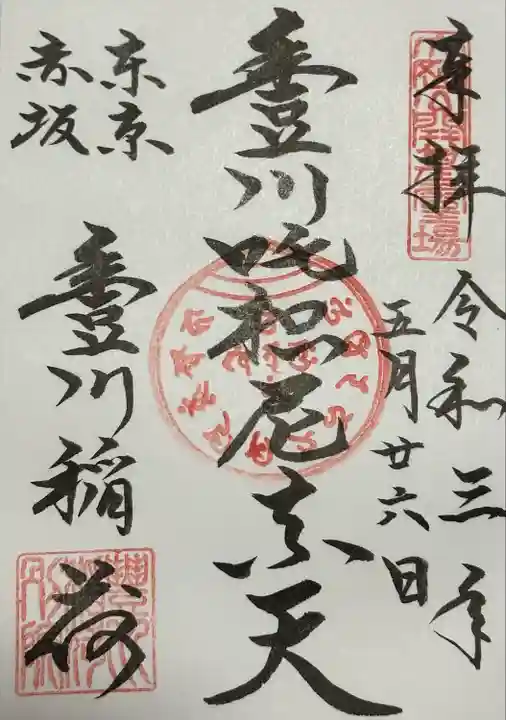 奉拝
令和三年
五月廿六日
豊川吒枳尼真天
東京
赤坂
豊川稲荷